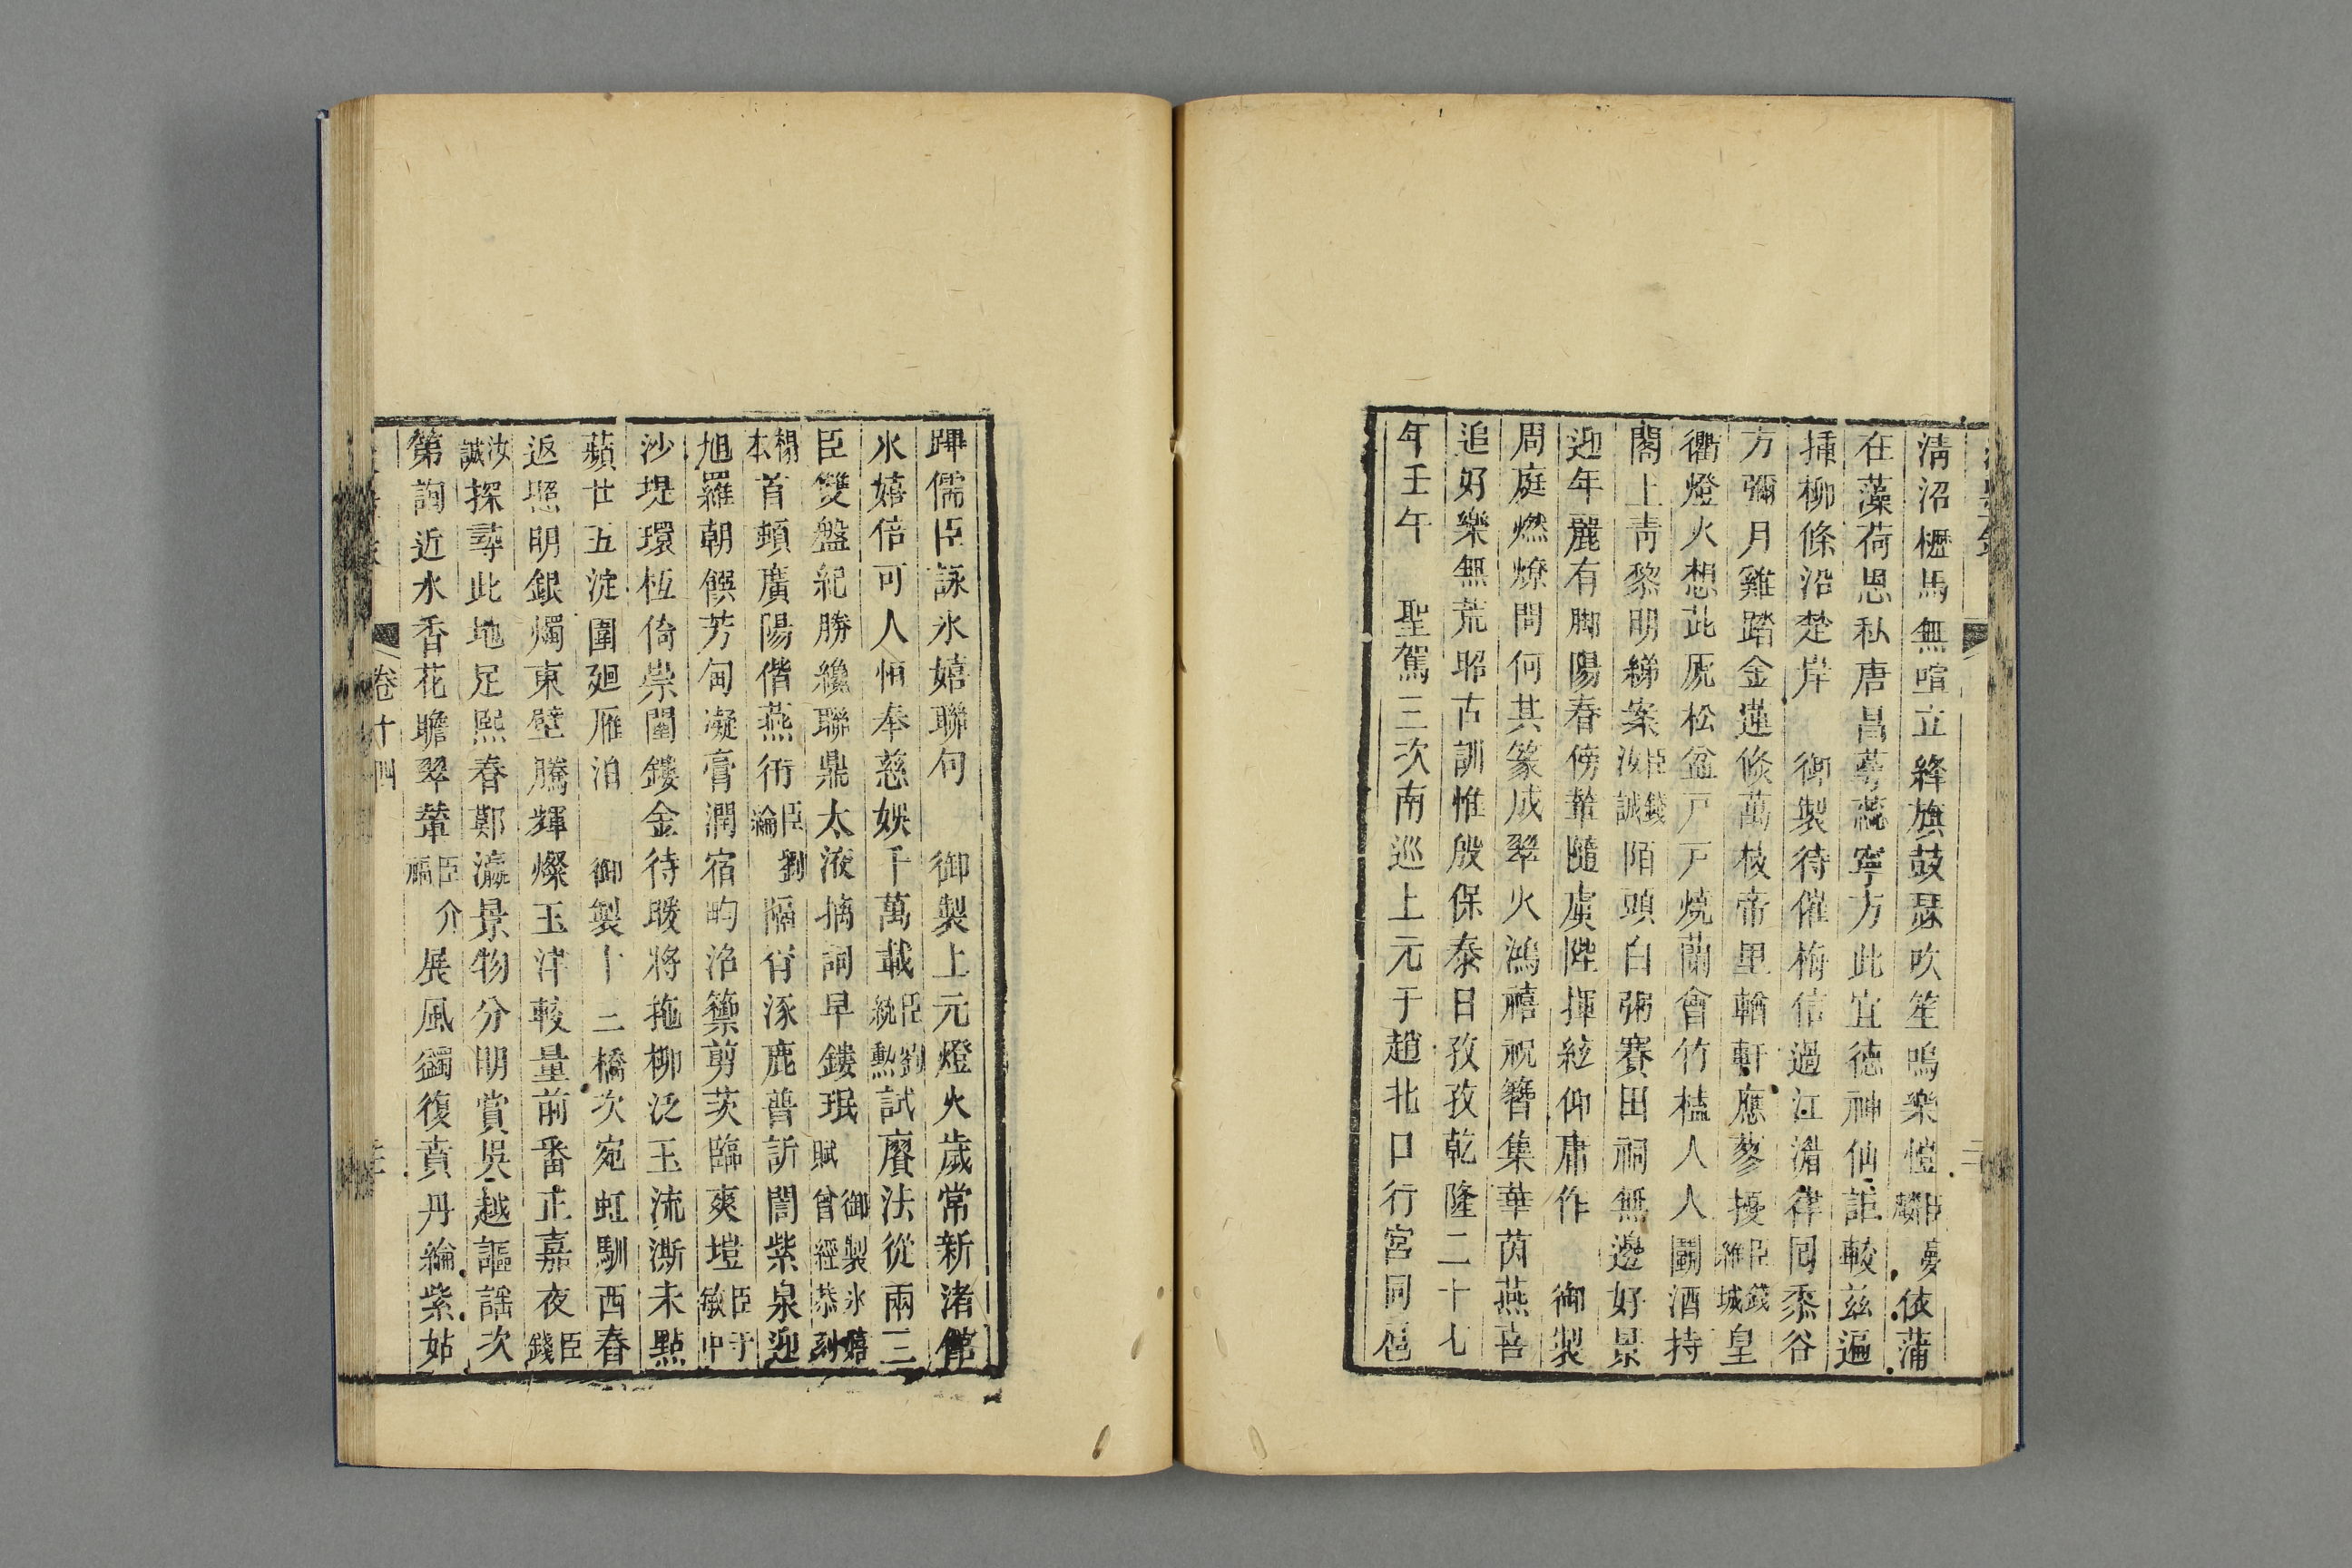 清沼櫪馬無喧立絳旗鼓瑟吹笙鳴樂愷臣夢麟依蒲
在藻荷恩私唐昌蕚蘂寧方此宜德神仙詎較兹遍
插柳條沿楚岸 御製待催梅信過江湄律囘黍谷
方彌月雞踏金蓮倏萬枝帝里輶軒應蓼擾臣錢維城皇
衢燈火想茈厎松盆戸戸燒蘭會竹榼人人鬭酒持
閣上青黎明綈案臣錢汝誠陌頭白粥賽田祠無邊好景
迎年麗有脚陽春傍輦隨虞陛揮絃仰庸作 御製
周庭燃燎問何其篆成翠火鴻禧祝簪集華茵燕喜
追好樂無荒昭古訓惟殷保泰日孜孜乾隆二十七
年壬午 聖駕三次南巡上元于趙北口行宮同扈
蹕儒臣詠氷嬉聯句 御製上元燈火歲常新渚館
氷嬉倍可人恒奉慈娛千萬載臣劉統勲試賡法從兩三
臣雙盤紀勝纔聯鼎太液摛詞早鏤珉御製氷嬉賦曾經恭刻
楊本首頓廣陽偕燕衎臣劉綸隔宵涿鹿普訢誾紫泉迎
旭羅朝饌芳甸凝膏潤宿畇洺籞剪茨臨爽塏臣于敏中
沙堤環柸倚崇闉鏤金待暖將拖柳泛玉流澌未點
蘋廿五淀圍廻雁泊 御製十二橋次宛虹馴西春
返照明銀燭東壁騰輝燦玉津較量前番正嘉夜臣錢
汝誠探尋此地足熙春鄭瀛景物分明賞吳越謳謠次
第詢近水香花瞻翠輦臣介福展風蠲復賁丹綸紫姑
卷十四